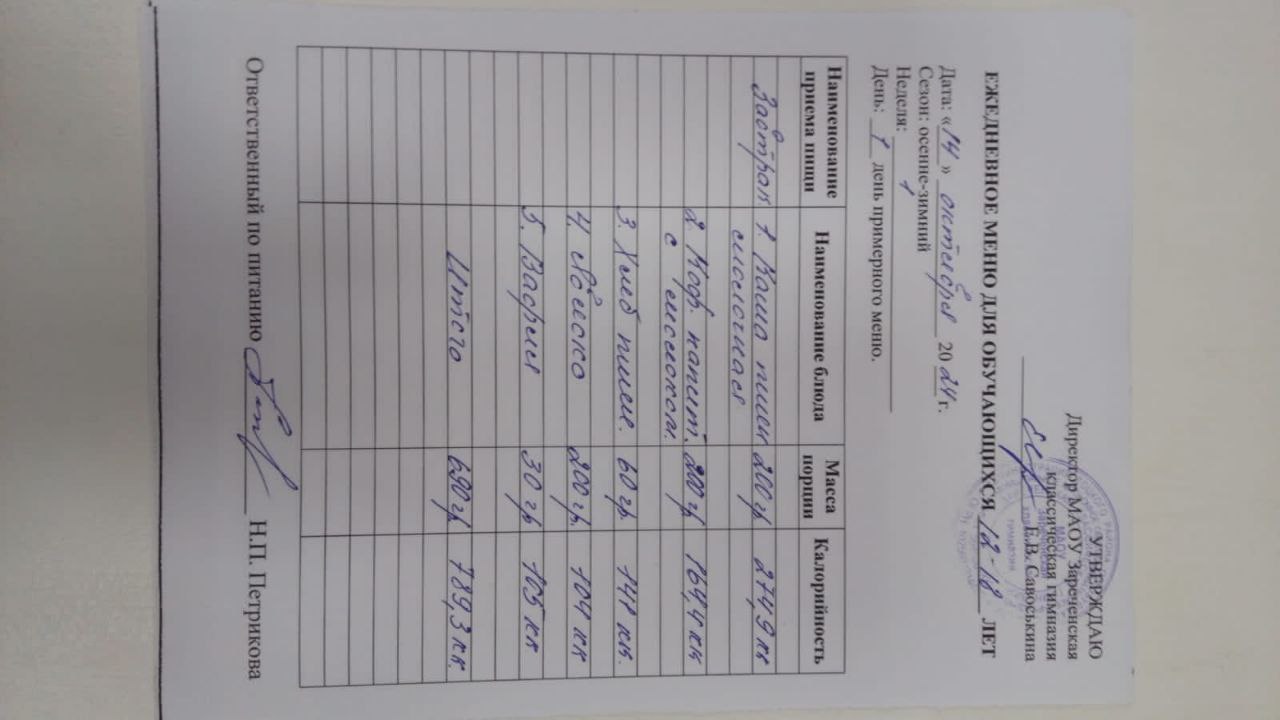 УТВЕРЖДАЮ
Директор МАОУ Зареченская
классическая гимназия
Е.В. Савоськина
ЕЖЕДНЕВНОЕ МЕНЮ ДЛЯ ОБУЧАЮЩИХСЯ 12-18 ЛЕТ
Дата: «14» октября 2024 г.
Сезон: осенне-зимний
Неделя: 1
День: 1 день примерного меню.
Наименование приема пищи Наименование блюда Масса порции Калорийность
Завтрак 1. Каша пшен 200 гр 274,9 кк
молочная
2. Коф. напит. 200 гр 164,4 кк
с молоком.
3. Хлеб пшен. 60 гр. 141 кк.
4. Яблоко 200 гр. 104 кк
5. Вафля 30 гр 105 кк
Итого 690 гр 789,3 кк.
Ответственный по питанию Н.П. Петрикова